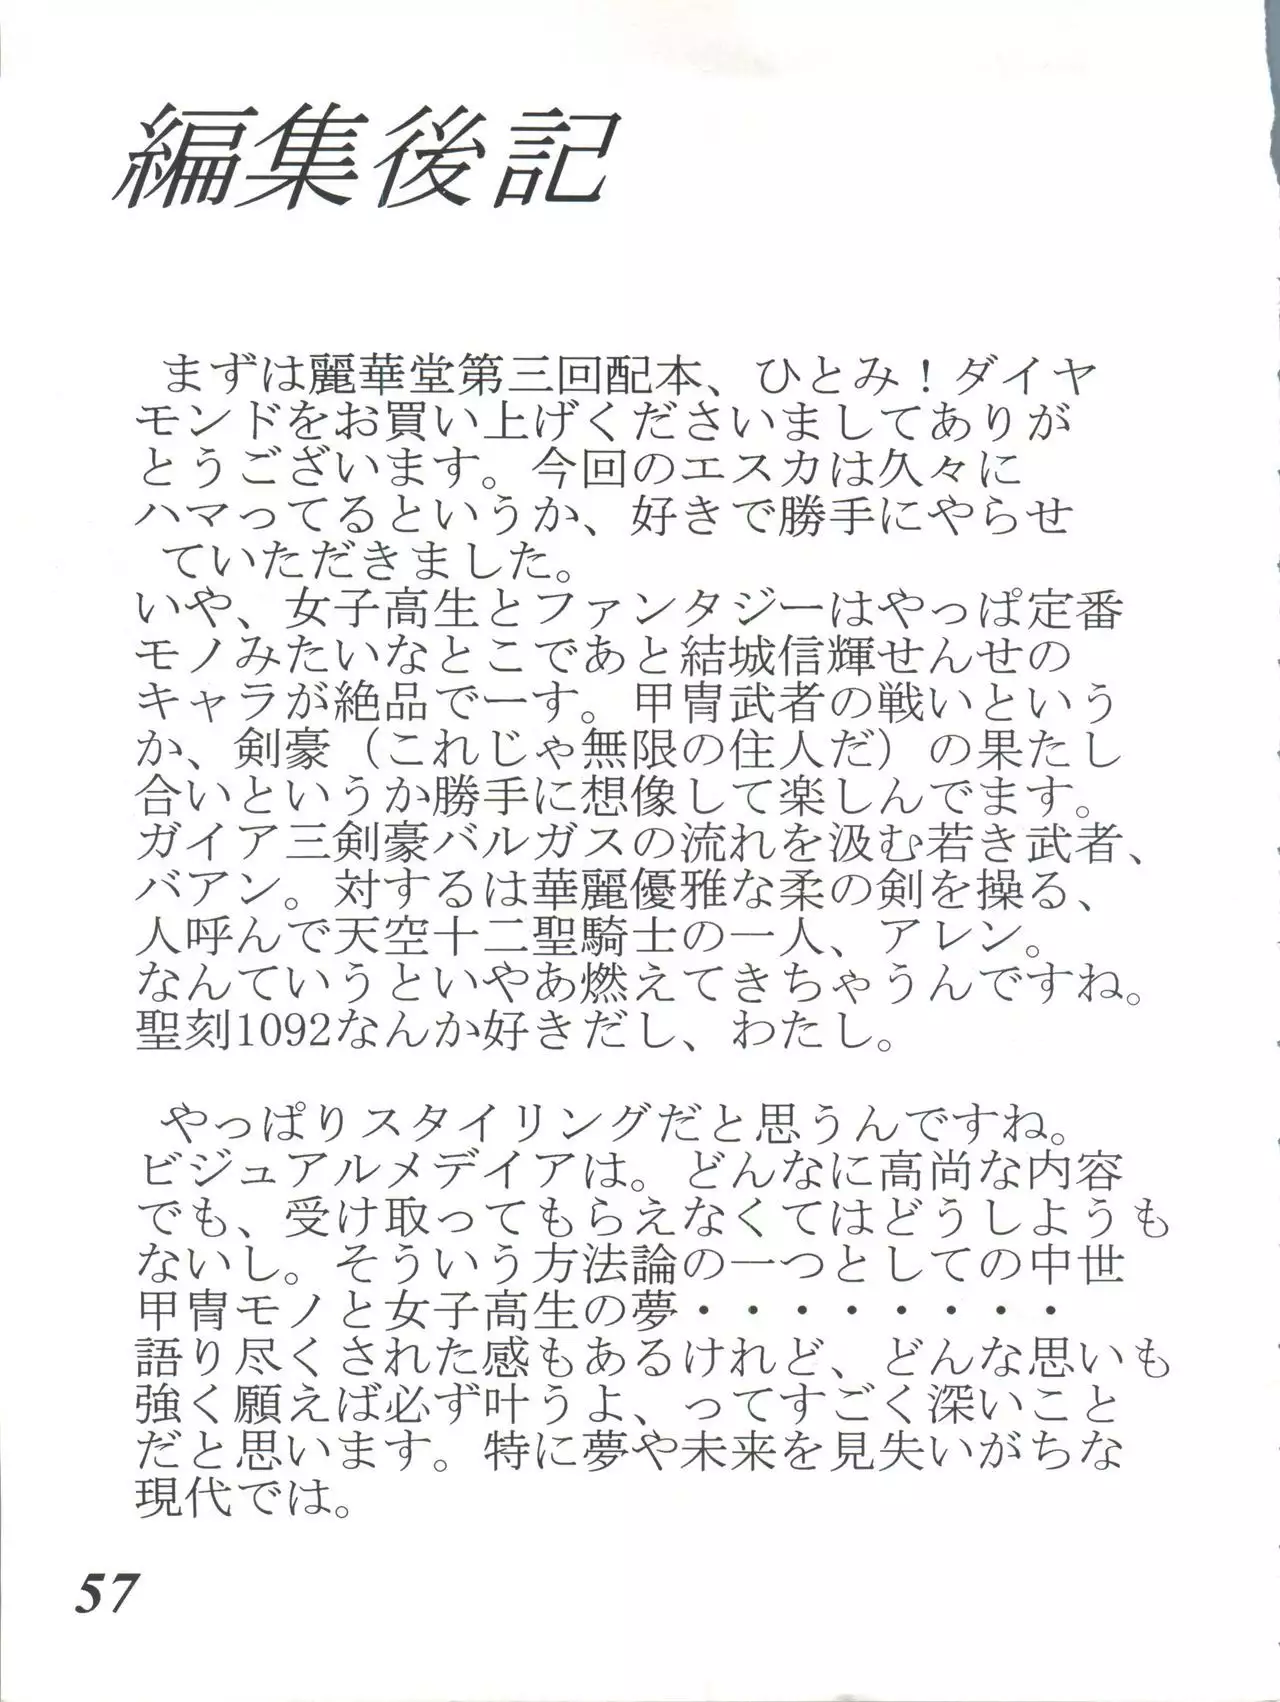 編集後記
まずは麗華堂第三回配本、ひとみ！ダイヤ
モンドをお買い上げくださいましてありが
とうございます。今回のエスカは久々に
ハマってるというか、好きで勝手にやらせ
ていただきました。
いや、女子高生とファンタジーはやっぱ定番
モノみたいなとこであと結城信輝せんせの
キャラが絶品でーす。甲冑武者の戦いという
か、剣豪（これじゃ無限の住人だ）の果たし
合いというか勝手に想像して楽しんでます。
ガイア三剣豪バルガスの流れを汲む若き武者、
バアン。対するは華麗優雅な柔の剣を操る、
人呼んで天空十二聖騎士の一人、アレン。
なんていうといやあ燃えてきちゃうんですね。
聖刻1092なんか好きだし、わたし。
やっぱりスタイリングだと思うんですね。
ビジュアルメデイアは。どんなに高尚な内容
でも、受け取ってもらえなくてはどうしようも
ないし。そういう方法論の一つとしての中世
甲冑モノと女子高生の夢・・・・・・・・
語り尽くされた感もあるけれど、どんな思いも
強く願えば必ず叶うよ、ってすごく深いこと
だと思います。特に夢や未来を見失いがちな
現代では。
57